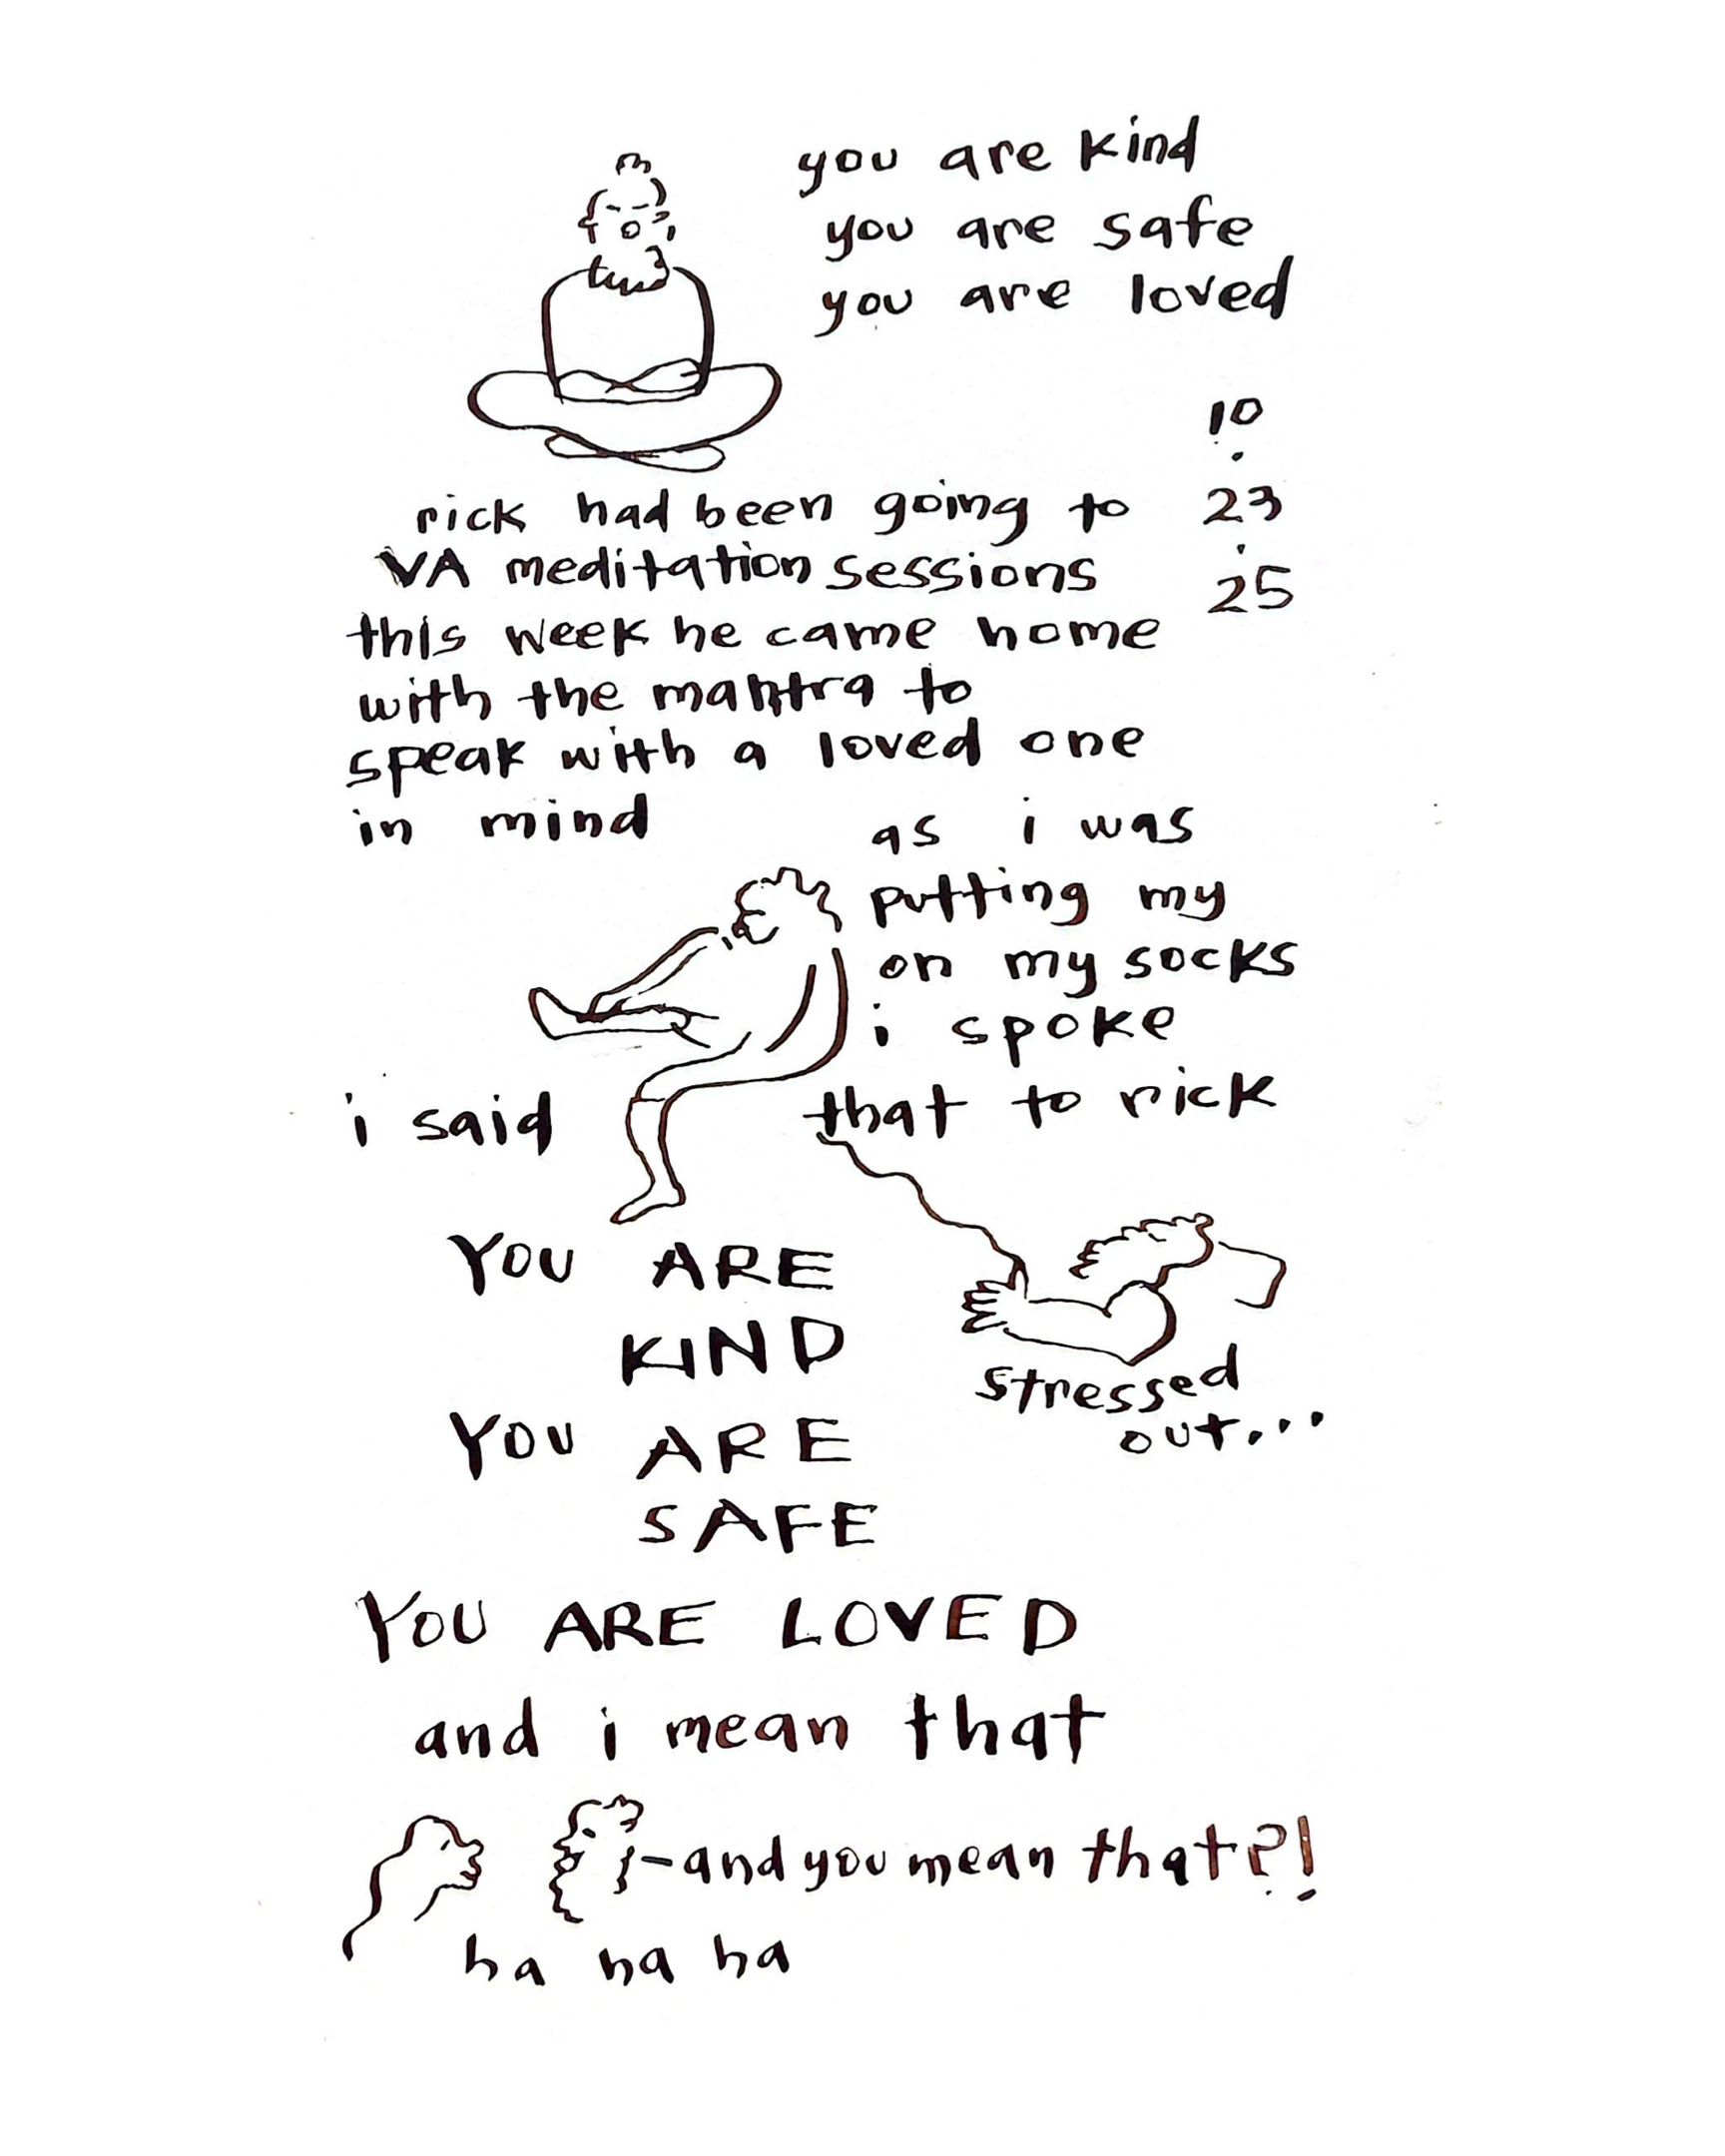 you are kind
you are safe
you are loved
10
.
23
.
25
rick had been going to
VA meditation sessions
this week he came home
with the mantra to
speak with a loved one
in mind
as i was
putting my
on my socks
i spoke
that to rick
stressed
out...
i said
YOU ARE
KIND
YOU ARE
SAFE
YOU ARE LOVED
and i mean that
-and you mean that?!
ha ha ha